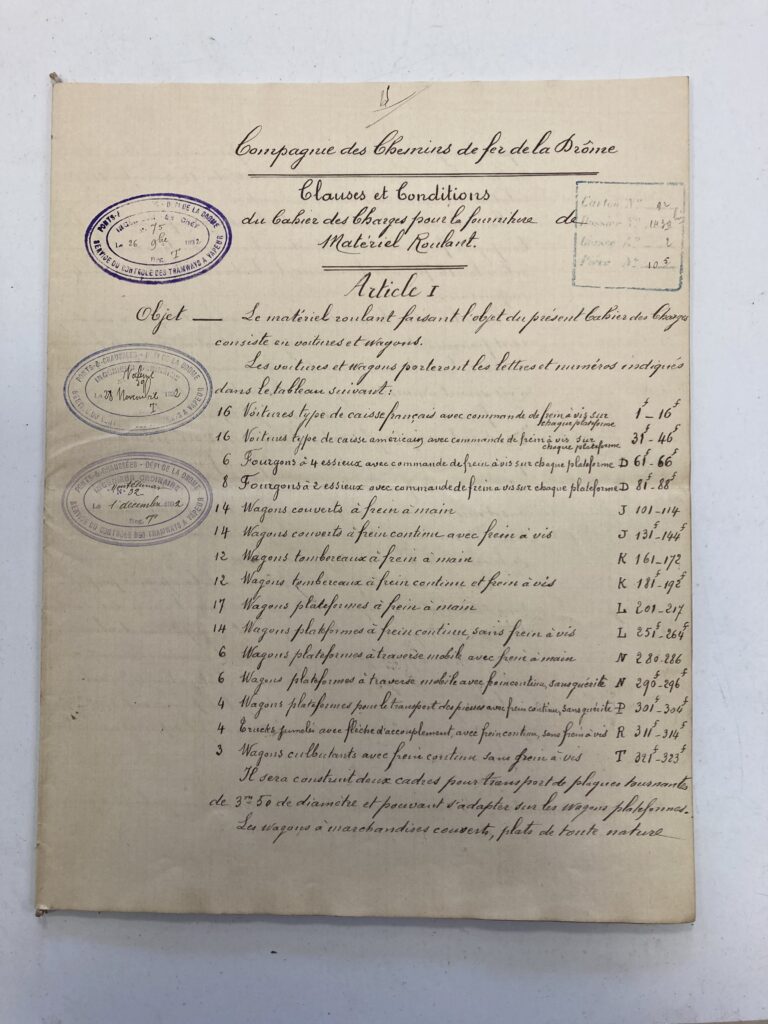 Compagnie des Chemins de fer de la Drôme
Clauses et Conditions
du Cahier des Charges pour la fourniture de
Matériel Roulant.
PONTS-& - DÉP! DE LA DROME
N° 75
Le 26 9bre 1892
Reg. T
SERVICE DU CONTRÔLE DES TRAMWAYS A VAPEUR
Carton N° 92
Dossier N° 1439
Liasse N° 2
Pièce N° 105
Article I
Objet — Le matériel roulant faisant l'objet du présent Cahier des Charges
consiste en voitures et wagons.
Les voitures et wagons porteront les lettres et numéros indiqués
dans le tableau suivant:
PONTS-&-CHAUSSÉES - DÉP! DE LA DROME
INGÉNIEUR ORDINAIRE
Le 28 Novembre 1892
T
SERVICE DU CONTRÔLE DES TRAMWAYS A VAPEUR
16 Voitures type de caisse français avec commande de frein à vis sur chaque plateforme 1f - 16f
16 Voitures type de caisse américain avec commande de frein à vis sur chaque plateforme 31f - 46f
6 Fourgons à 4 essieux avec commande de frein à vis sur chaque plateforme D 61f - 66f
8 Fourgons à 2 essieux avec commande de frein à vis sur chaque plateforme D 81f - 88f
PONTS-&-CHAUSSÉES - DÉP! DE LA DROME
INGÉNIEUR ORDINAIRE
Montélimar
N° 32
Le 1 décembre 1892
Reg. T
SERVICE DU CONTRÔLE DES TRAMWAYS A VAPEUR
14 Wagons couverts à frein à main J 101 - 114
14 Wagons couverts à frein continu avec frein à vis J 131f - 144f
12 Wagons tombereaux à frein à main K 161 - 172
12 Wagons tombereaux à frein continu et frein à vis K 181f - 192f
17 Wagons plateformes à frein à main L 201 - 217
14 Wagons plateformes à frein continu, sans frein à vis L 251f - 264f
6 Wagons plateformes à traverse mobile avec frein à main N 280 - 286
6 Wagons plateformes à traverse mobile avec frein continu, sans guérite N 290f - 296f
4 Wagons plateformes pour le transport des pierres avec frein continu, sans guérite P 301f - 304f
4 Trucks jumelés avec flèche d'accouplement, avec frein continu, sans frein à vis R 311f - 314f
3 Wagons culbutants avec frein continu sans frein à vis T 321f - 323f
Il sera construit deux cadres pour transport de plaques tournantes
de 3m50 de diamètre et pouvant s'adapter sur les wagons plateformes.
Les wagons à marchandises couverts, plats de toute nature